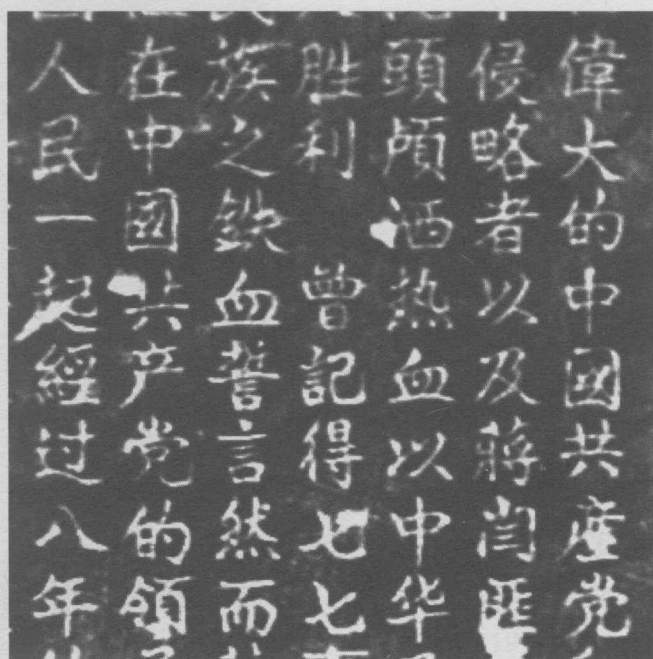 偉大的中國共産党
侵略者以及蔣闫匪
頭颅洒热血以中华
胜利 曾記得七七
族之鉄血誓言然而
在中國共产党的領
人民一起經过八年